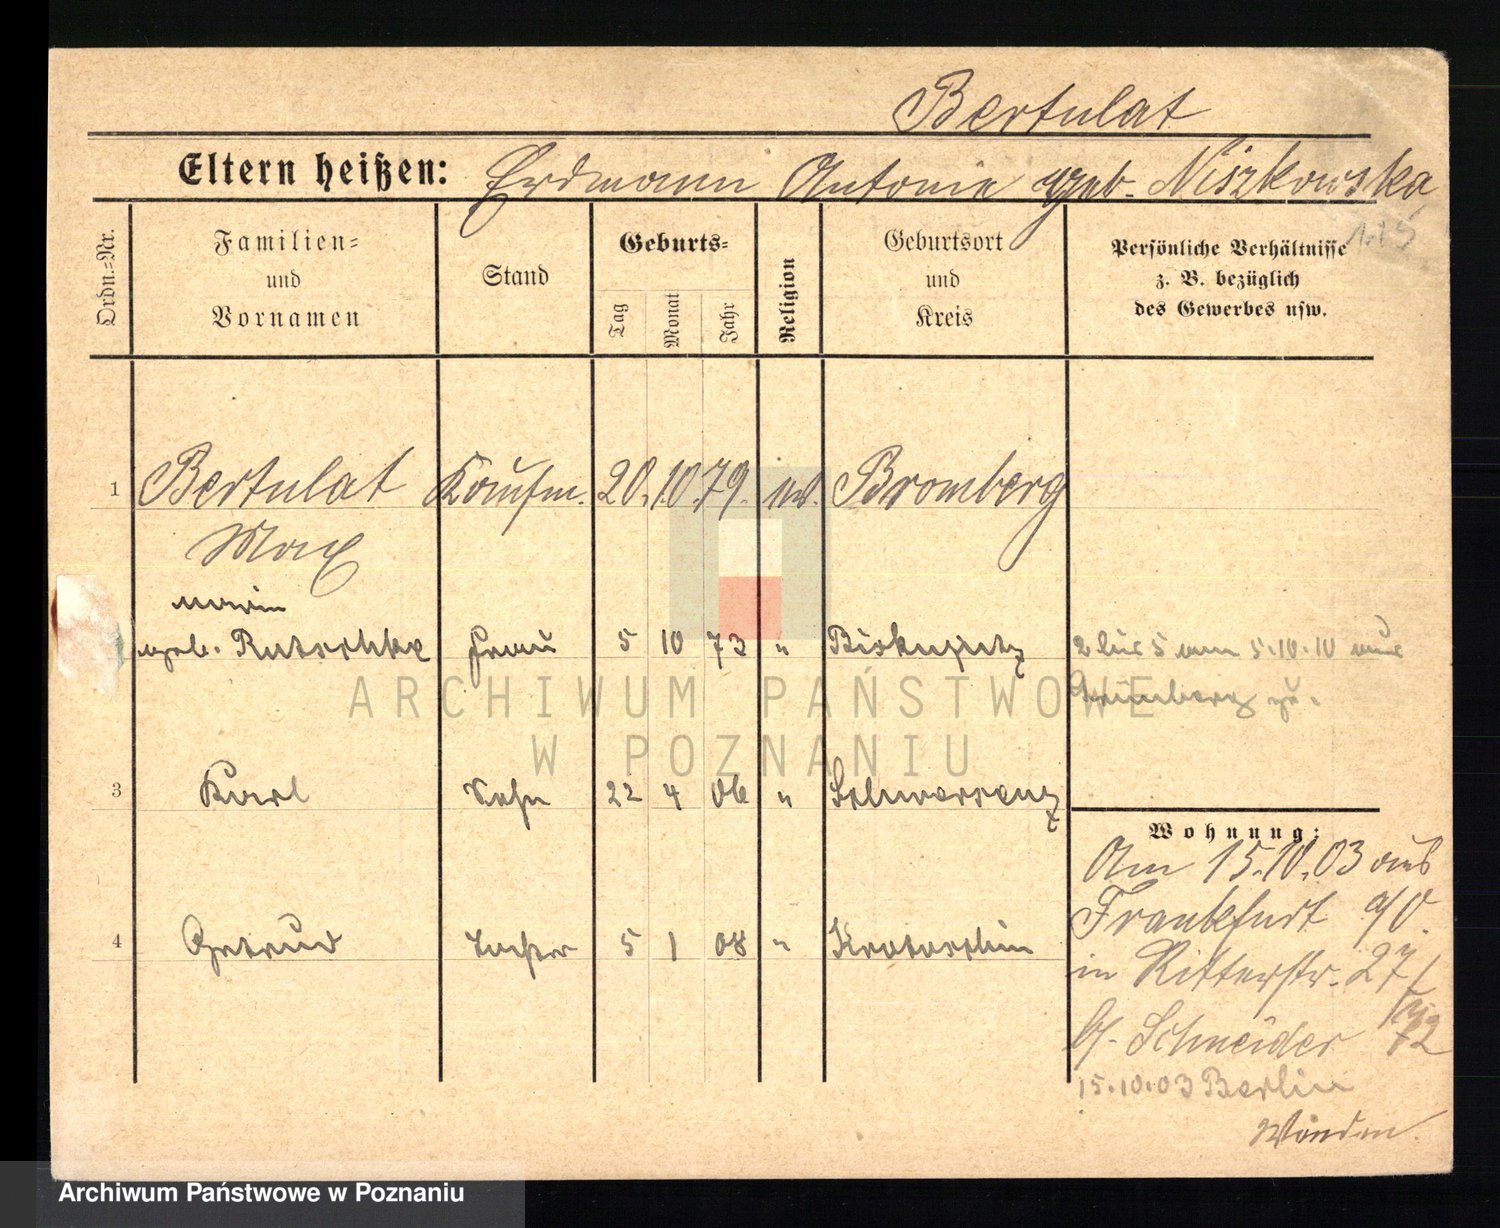 Bertulat
Eltern heißen: Erdmann Antonie geb. Niszkowska
Ordn.=Nr.
Familien=
und
Vornamen
Stand
Geburts=
Tag
Monat
Jahr
Religion
Geburtsort
und
Kreis
Persönliche Verhältnisse
z. B. bezüglich
des Gewerbes usw.
1 Bertulat Kaufm. 20. 10. 79. ev. Bromberg
Max
geb. Rutschke Frau 5 10 73 " Biskupitz 2 bis 5 am 5.10.10 aus
Grünberg zu.
3 Karl Sohn 22 4 06 " Schwersenz
4 Gertrud Tochter 5 1 08 " Krotoschin
Wohnung:
Am 15.10.03 aus
Frankfurt a/O.
in Ritterstr. 27/
b/. Schneider
15.10.03 Berlin
ARCHIWUM PAŃSTWOWE
W POZNANIU
Archiwum Państwowe w Poznaniu